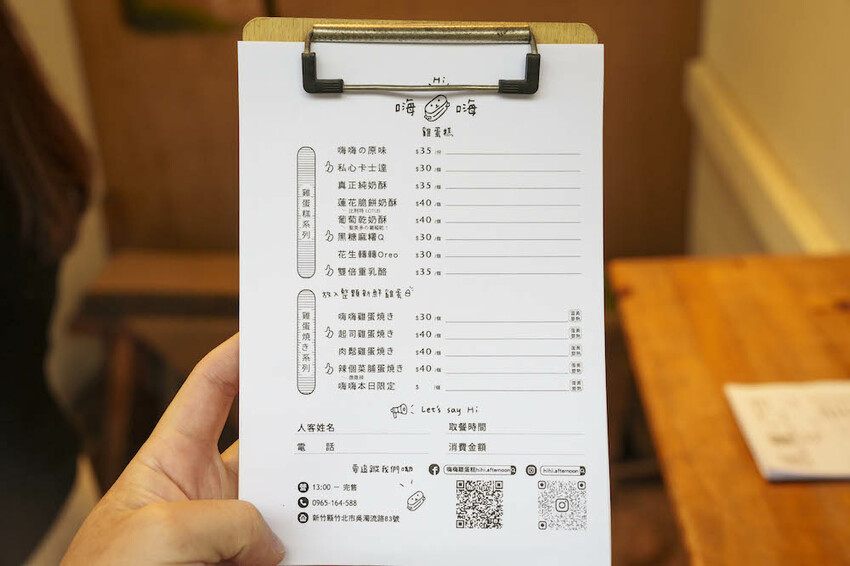 Hi
嗨 嗨
雞蛋糕
雞蛋糕系列
嗨嗨の原味 $35/份
私心卡士達 $30/個
真正純奶酥 $35/個
蓮花脆餅奶酥 $40/個
葡萄乾奶酥 $40/個
黑糖麻糬Q $30/個
花生轉轉Oreo $30/個
雙倍重乳酪 $35/個
放入整顆新鮮雞蛋
雞蛋燒き系列
嗨嗨雞蛋燒き $30/個
起司雞蛋燒き $40/個
肉鬆雞蛋燒き $40/個
辣個菜脯蛋燒き $40/個
嗨嗨本日限定 $ /個
Let's say Hi
人客姓名 取餐時間
電 話 消費金額
要追蹤我們呦
嗨嗨雞蛋糕hihi.afternoon
hihi.afternoon
13:00 － 完售
0965-164-588
新竹縣竹北市吳濁流路83號